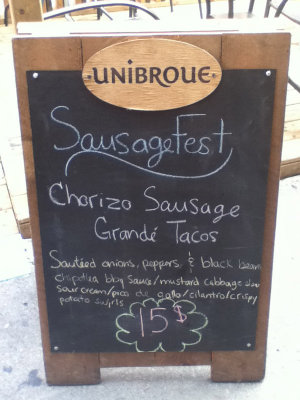 UNIBROUE
SausageFest
Chorizo Sausage
Grandé Tacos
Sautéed onions, peppers, & black bean
chipotlea bbq sauce/mustard cabbage slaw
sour cream/pico de gallo/cilantro/crispy
potato swirls
15$